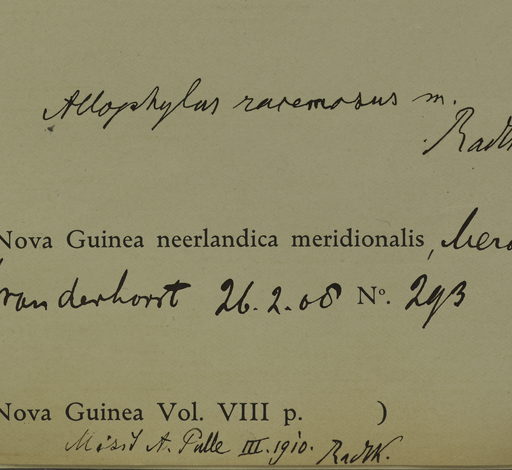 Allophylus racemosus m.
Radlk
Nova Guinea neerlandica meridionalis,
van der horst 26.2.08 Nº. 293
Nova Guinea Vol. VIII p. )
Misit A. Pulle III.1910. Radlk.